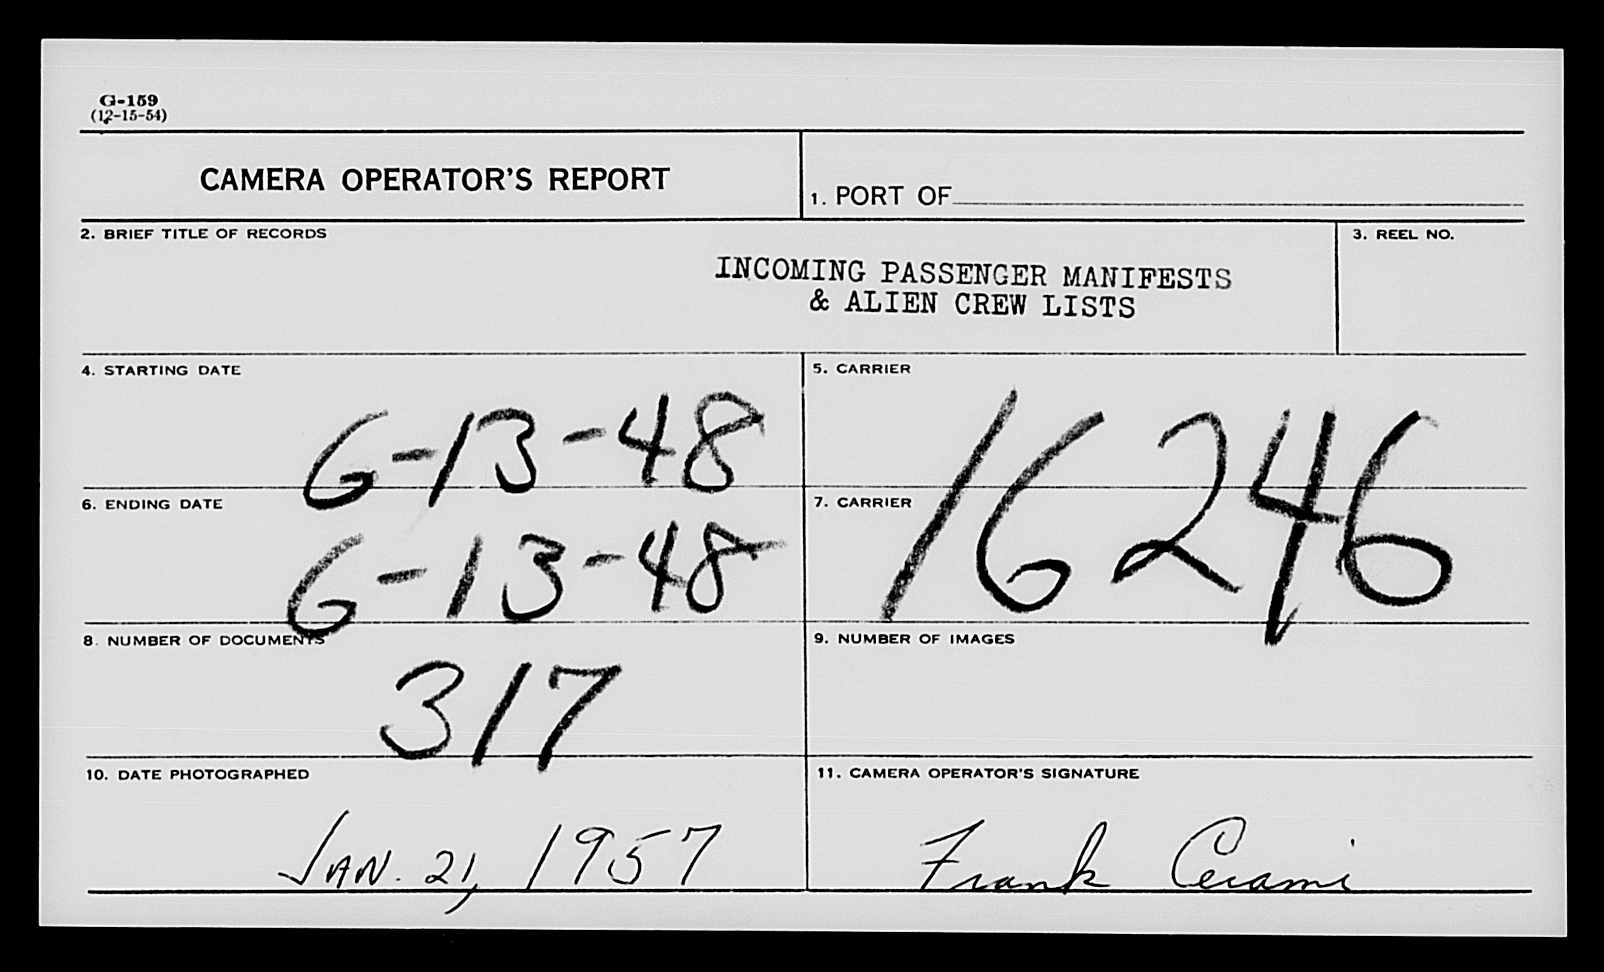 G-159
(12-15-54)
CAMERA OPERATOR'S REPORT
1. PORT OF
2. BRIEF TITLE OF RECORDS
3. REEL NO.
INCOMING PASSENGER MANIFESTS
& ALIEN CREW LISTS
4. STARTING DATE
6-13-48
5. CARRIER
16246
6. ENDING DATE
6-13-48
7. CARRIER
8. NUMBER OF DOCUMENTS
317
9. NUMBER OF IMAGES
10. DATE PHOTOGRAPHED
JAN. 21, 1957
11. CAMERA OPERATOR'S SIGNATURE
Frank Cerami